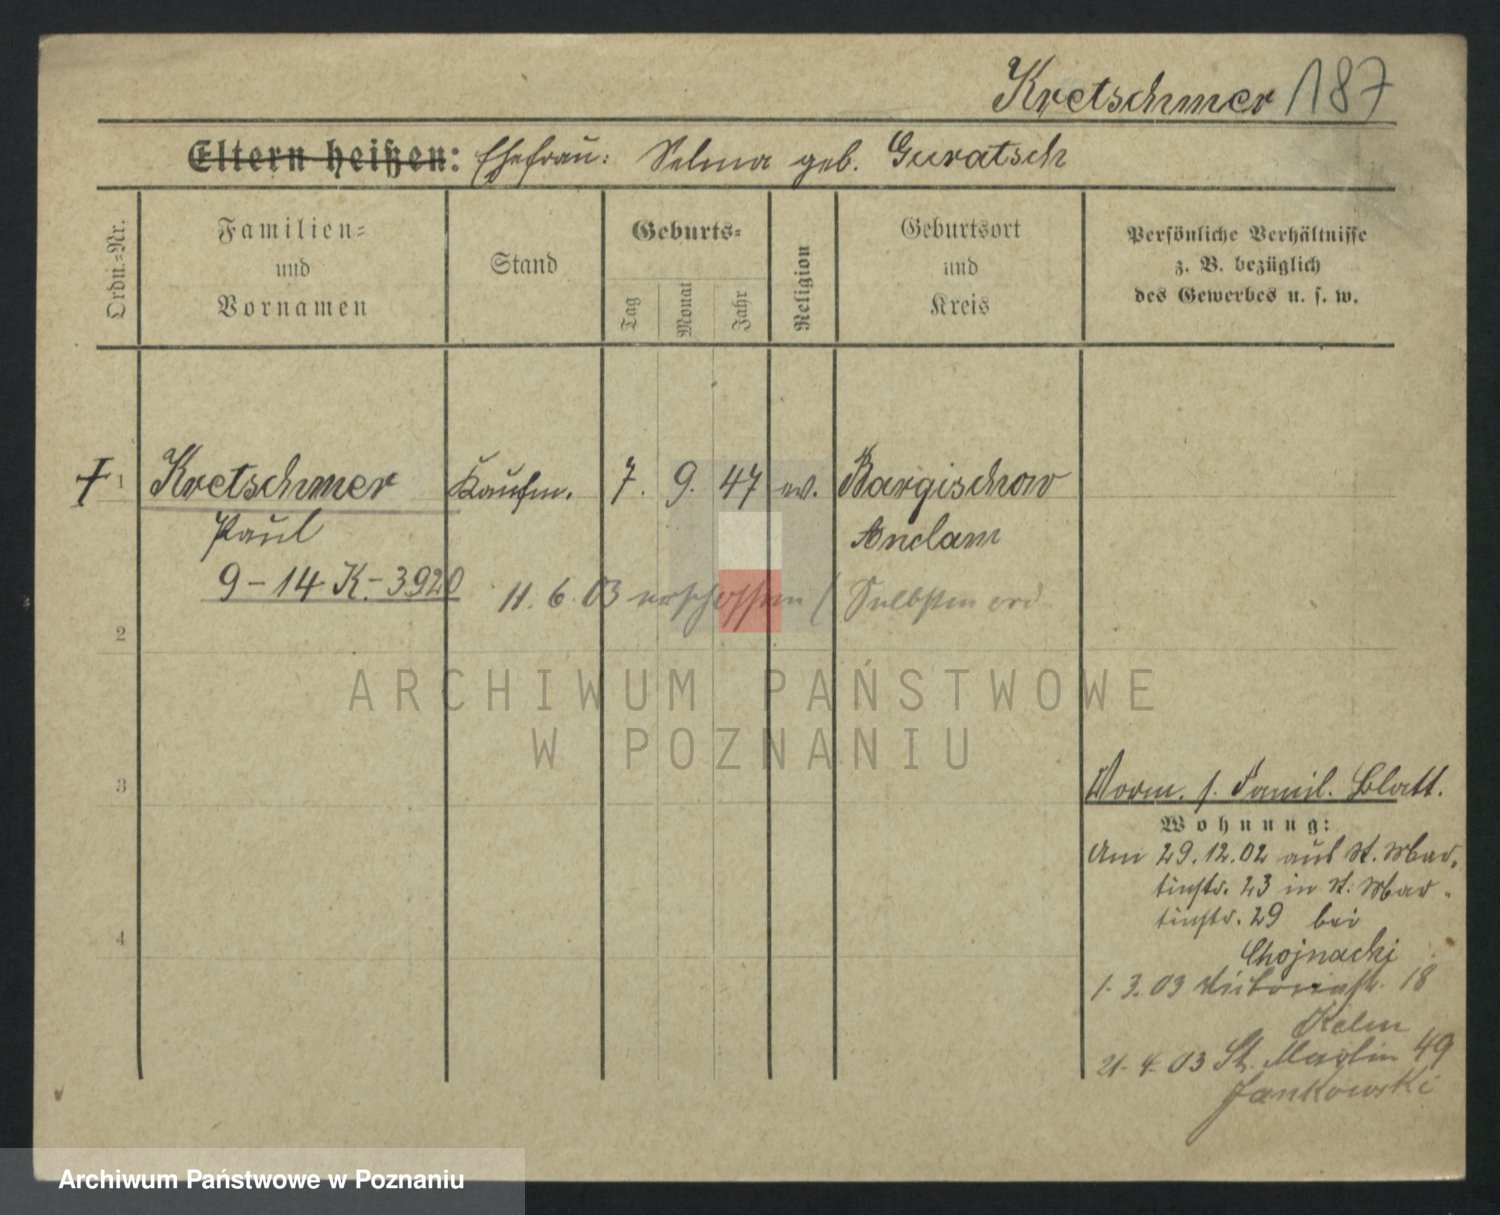 Kretschmer 187
Eltern heißen: Ehefrau: Selma geb. Guratsch
Ordn.-Nr.
Familien-
und
Vornamen
Stand
Geburts-
Tag
Monat
Jahr
Religion
Geburtsort
und
Kreis
Persönliche Verhältnisse
z. B. bezüglich
des Gewerbes u. s. w.
† 1 Kretschmer Kaufm. 7. 9. 47 ev. Bargischow
Paul Anclam
9-14 K.-3920
11. 6. 03 erschossen / Selbstmord
2
ARCHIWUM PAŃSTWOWE
W POZNANIU
3
4
Vorm. s. Famil. Blatt.
Wohnung:
Am 29.12.02 aus St. Mar-
tinstr. 23 in St. Mar-
tinstr. 29 bei
Chojnacki
1. 3. 03 Victoriastr. 18
Kelm
21. 4. 03 St. Martin 49
Jankowski
Archiwum Państwowe w Poznaniu